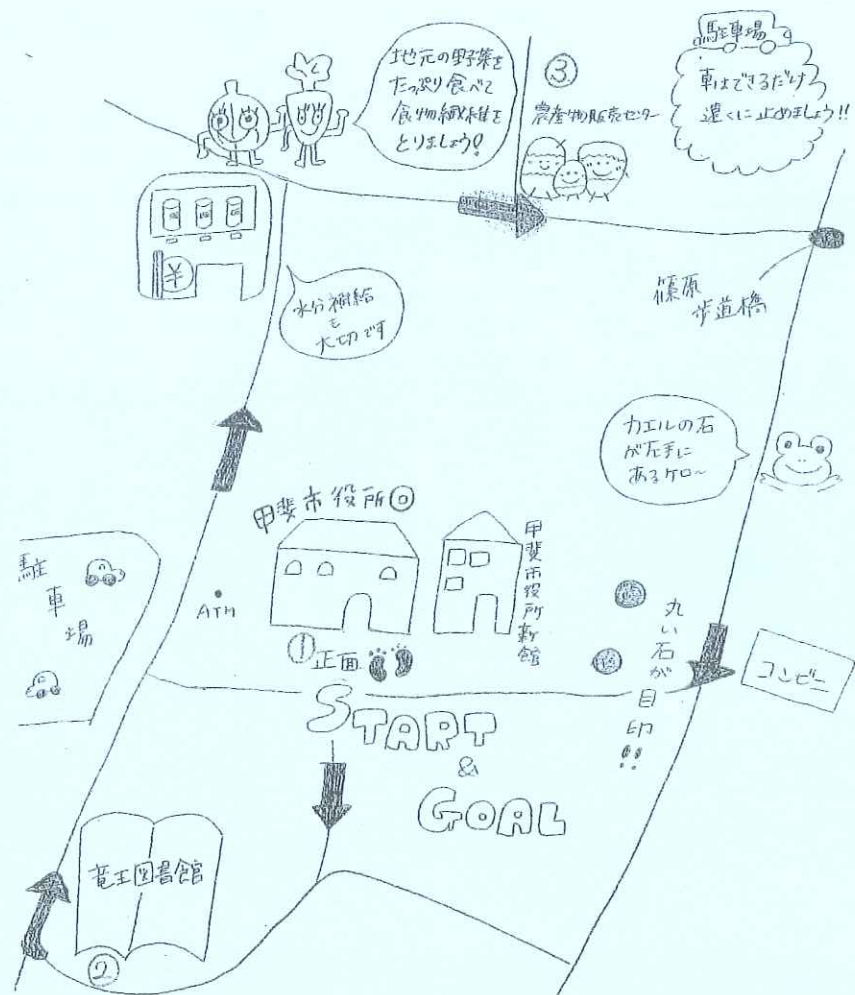 地元の野菜を
たっぷり食べて
食物繊維を
とりましょう!
③
農産物販売センター
駐車場
車はできるだけ
遠くに止めましょう!!
¥
水分補給
も
大切です
篠原
歩道橋
カエルの石
が左手に
あるケロ〜
甲斐市役所◎
甲斐市役所新館
駐車場
ATM
①正面
丸い石が目印!!
コンビニ
START
&
GOAL
竜王図書館
②